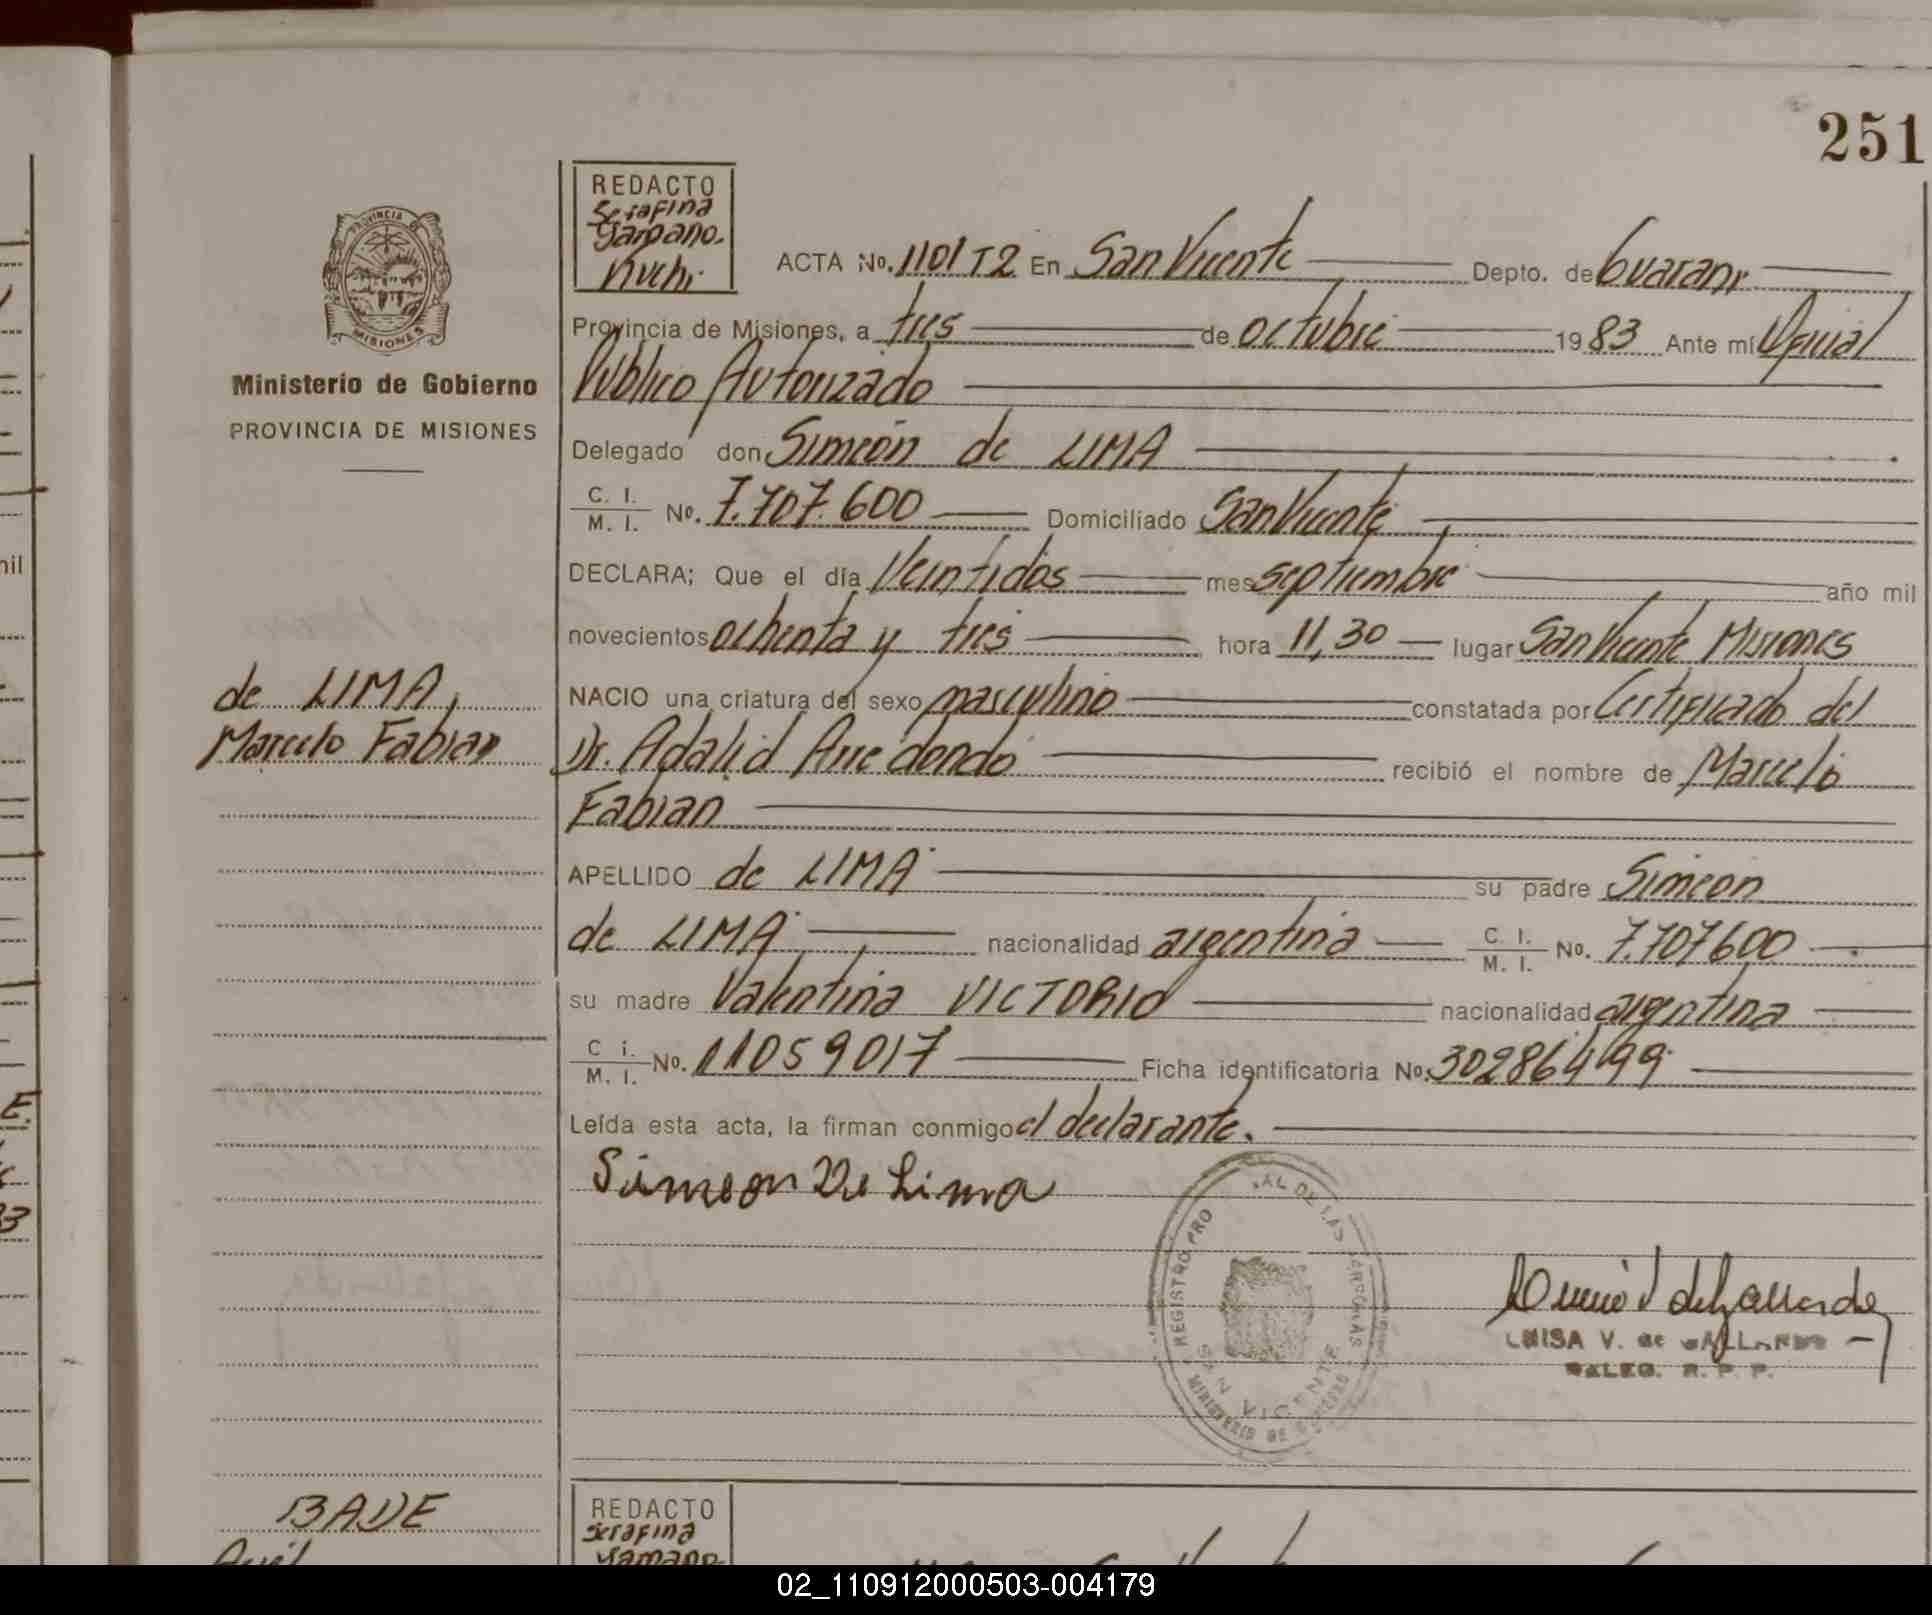 251
REDACTO
Serafina
Yamano.
Kuchi.
ACTA No. 1101 T2 En San Vicente Depto. de Guarani
Provincia de Misiones, a tres de octubre 1983 Ante mí Oficial
Público Autorizado
Delegado don Simeón de LIMA
C. I. / M. I. No. 7.707.600 Domiciliado San Vicente
DECLARA; Que el día Veintidós mes septiembre año mil
novecientos ochenta y tres hora 11,30 lugar San Vicente Misiones
NACIO una criatura del sexo masculino constatada por Certificado del
Dr. Adalid Arredondo recibió el nombre de Marcelo
Fabian
APELLIDO de LIMA su padre Simeon
de LIMA nacionalidad argentina C. I. / M. I. No. 7.707600
su madre Valentina VICTORIO nacionalidad argentina
C i. / M. I. No. 11059017 Ficha identificatoria No. 302864499
Leída esta acta, la firman conmigo el declarante.
Simeon De Lima
PROVINCIA
MISIONES
Ministerio de Gobierno
PROVINCIA DE MISIONES
de LIMA,
Marcelo Fabian
REGISTRO PRO AL DE LAS PERSONAS
SAN VICENTE
MINISTERIO DE GOBIERNO
LUISA V. de GALLARDO
DELEG. R. P. P.
nil
E.
BADE
REDACTO
Serafina
Yamano
02_110912000503-004179